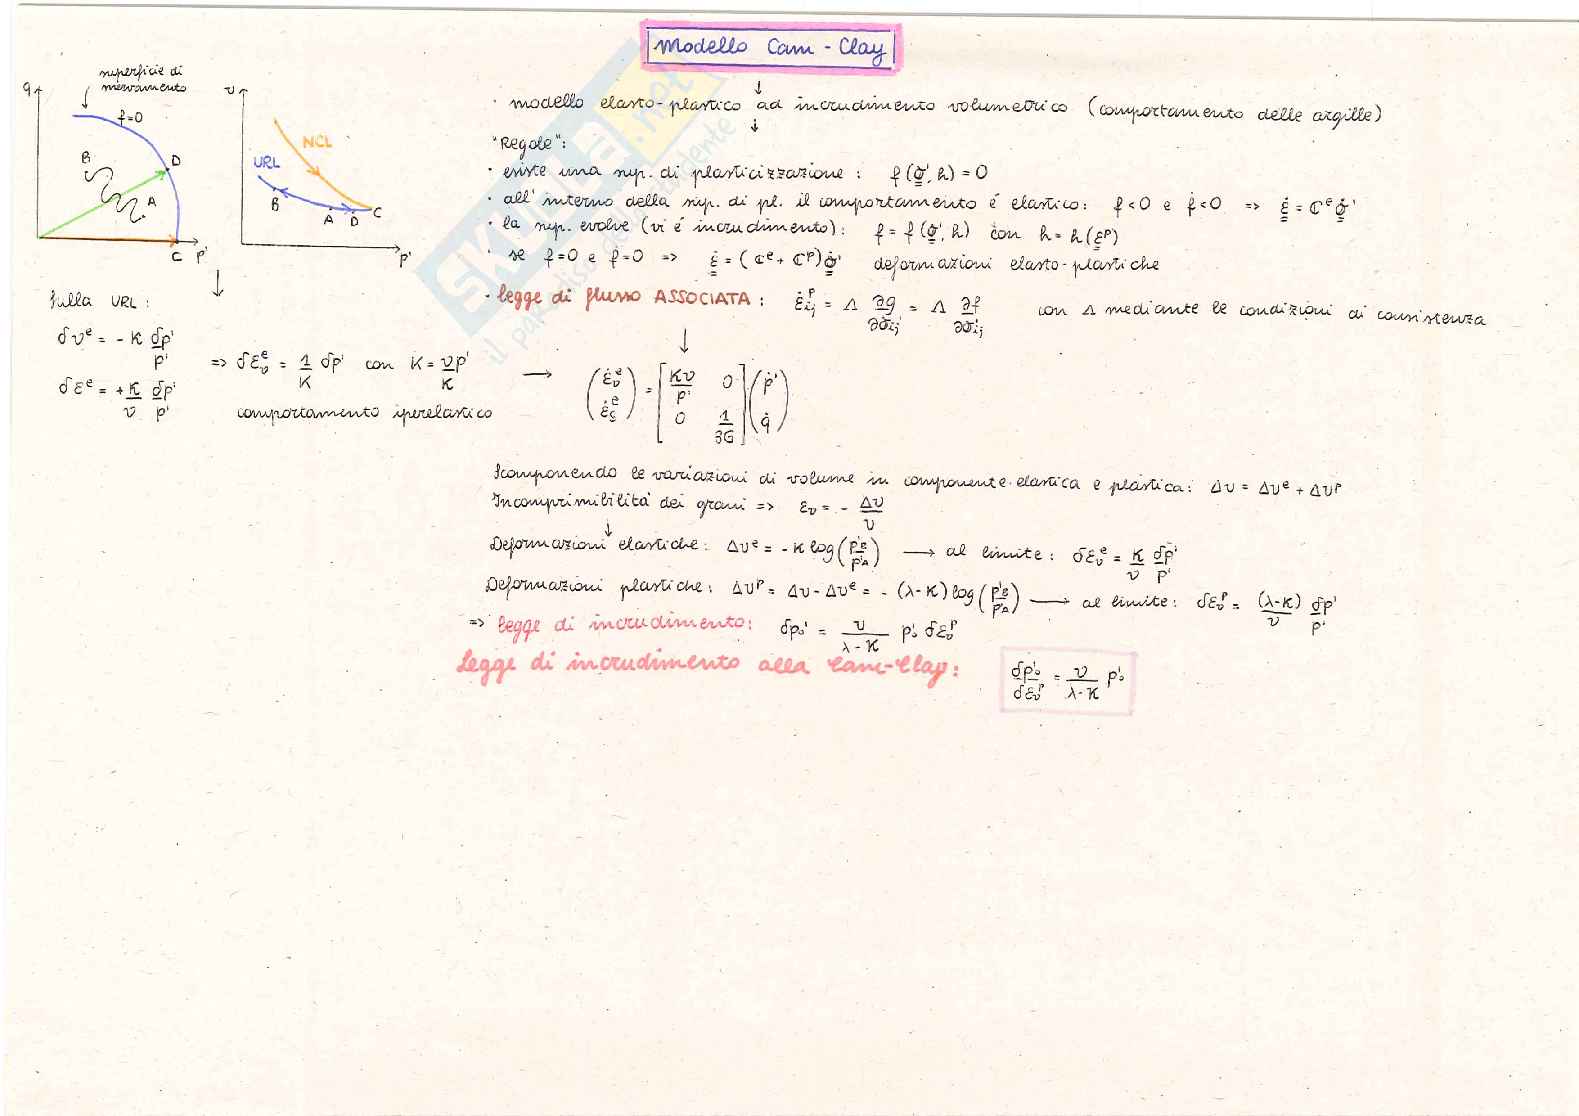 Modello Cam - Clay
superficie di
snervamento
q
f=0
B
A
D
C
p'
v
NCL
URL
B
A
D
C
p'
· modello elasto-plastico ad incrudimento volumetrico (comportamento delle argille)
"Regole":
· esiste una sup. di plasticizzazione : f(σ', h) = 0
· all'interno della sup. di pl. il comportamento é elastico: f<0 e ḟ<0 => ε̇ = ℂᵉ σ̇'
· la sup. evolve (vi é incrudimento): f = f(σ', h) con h = h(εᵖ)
· se f=0 e ḟ=0 => ε̇ = (ℂᵉ + ℂᵖ) σ̇' deformazioni elasto-plastiche
· legge di flusso ASSOCIATA : ε̇ᵖij = Λ ∂g/∂σ'ij = Λ ∂f/∂σ'ij con Λ mediante le condizioni di consistenza
Sulla URL :
δvᵉ = - κ δp'/p'
δεᵉ = + κ/v δp'/p'
=> δεᵥᵉ = 1/K δp' con K = vp'/κ
comportamento iperelastico
(ε̇ᵥᵉ ε̇ₛᵉ) = [κv/p' 0 0 1/3G] (ṗ' q̇)
Scomponendo le variazioni di volume in componente elastica e plastica: Δv = Δvᵉ + Δvᵖ
Incomprimibilità dei grani => εᵥ = - Δv/v
Deformazioni elastiche: Δvᵉ = - κ log(p'B/p'A) → al limite: δεᵥᵉ = κ/v δp'/p'
Deformazioni plastiche: Δvᵖ = Δv - Δvᵉ = - (λ-κ) log(p'B/p'A) → al limite: δεᵥᵖ = (λ-κ)/v δp'/p'
=> legge di incrudimento: δp₀' = v/λ-κ p'₀ δεᵥᵖ
Legge di incrudimento alla Cam-Clay: δp'₀/δεᵥᵖ = v/λ-κ p'₀
SKUOLA.net
il paradiso dello studente